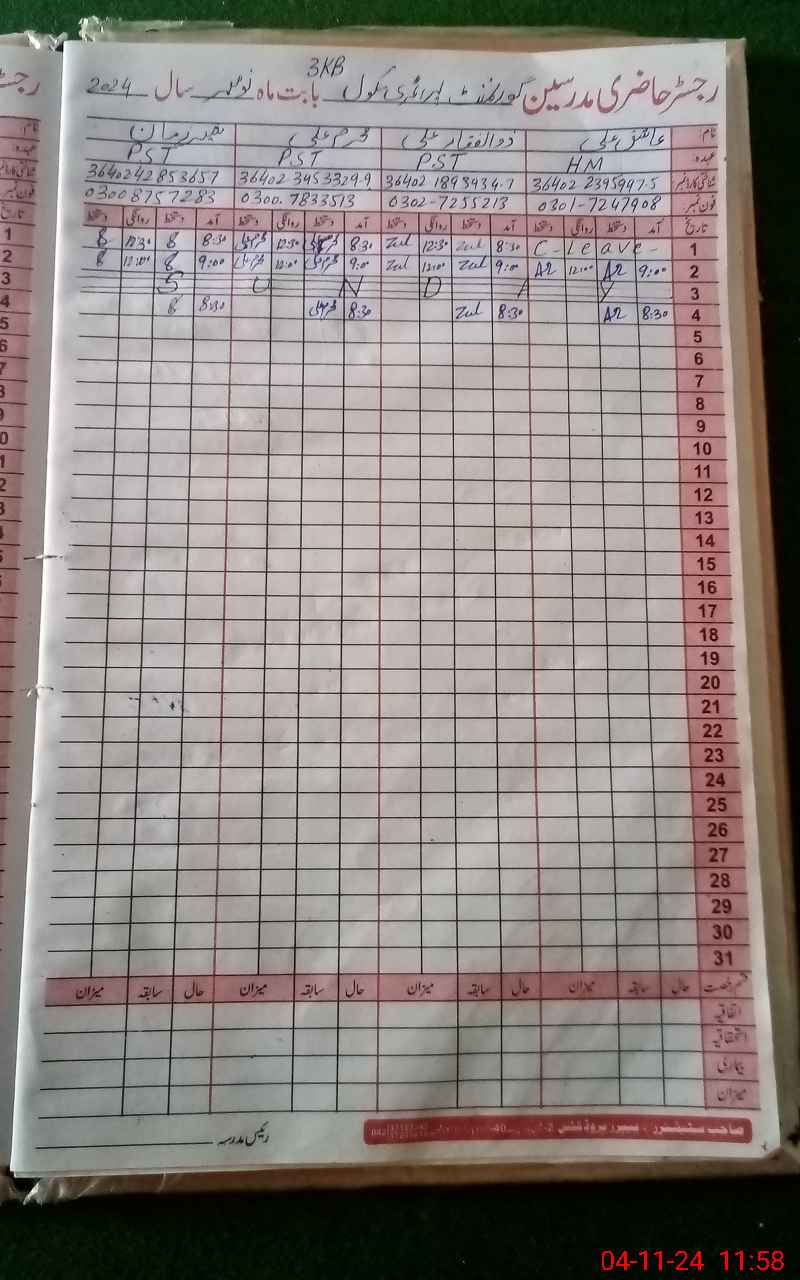 رجسٹر حاضری مدرسین گورنمنٹ پرائمری سکول 3KB بابت ماہ نومبر سال 2024
نام: عاشق علی ذوالفقار علی خرم علی
عہدہ: HM PST PST PST
شناختی کارڈ نمبر 36402 2395997-5 36402-1893934-7 36402-3453329-9 3640242853657
فون نمبر: 0301-7247908 0302-7255213 0300.7833513 03008757283
تاریخ آمد دستخط روانگی دستخط آمد دستخط روانگی دستخط آمد دستخط روانگی دستخط آمد دستخط روانگی دستخط
1 C-Leave- 8:30 Zul 12:30 Zul 8:30 12:30 8:30 8 12:30 8
2 9:00 AR 12:00 AR 9:00 Zul 12:00 Zul 9:00 12:00 9:00 8 12:00 8
3 SUNDAY
4 8:30 AR 8:30 Zul 8:30 8:30 8
5
6
7
8
9
10
11
12
13
14
15
16
17
18
19
20
21
22
23
24
25
26
27
28
29
30
31
قسم رخصت حال سابقہ میزان حال سابقہ میزان حال سابقہ میزان حال سابقہ میزان
اتفاقیہ
استحقاقیہ
بیماری
میزان
رئیس مدرسہ
04-11-24 11:58